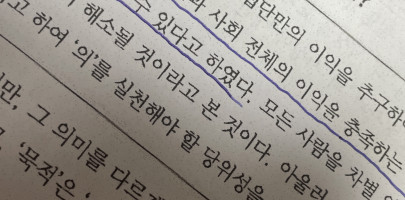 집단만의 이익을 추구하
과 사회 전체의 이익은 충족하는
수 있다고 하였다. 모든 사람을 차별
해소될 것이라고 본 것이다. 아울러
고 하여 ‘의’를 실천해야 할 당위성을
만, 그 의미를 다르게
‘목적’은